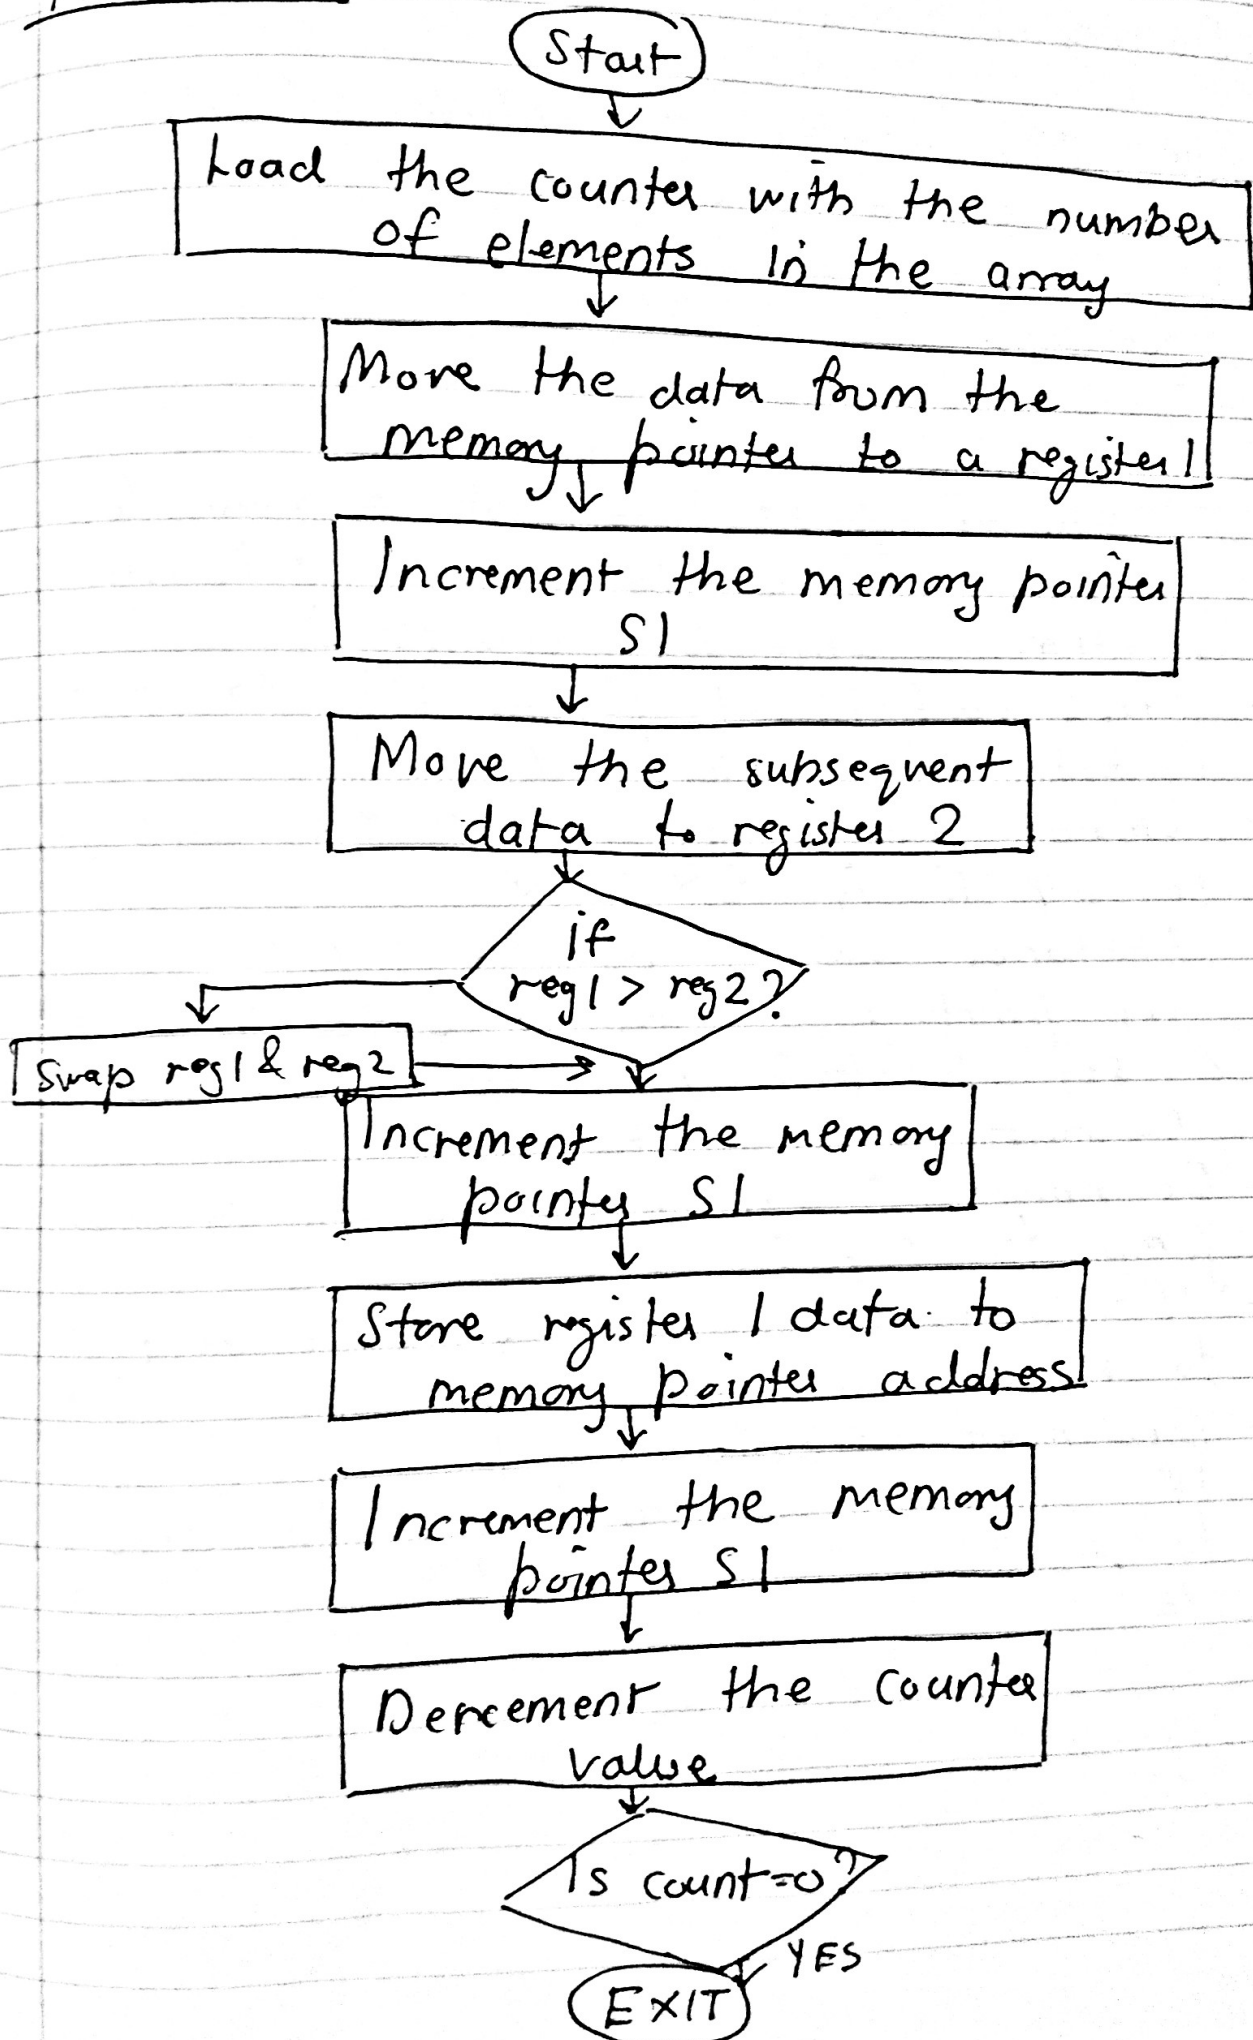 Start
Load the counter with the number
of elements in the array
Move the data from the
memory pointer to a register 1
Increment the memory pointer
SI
Move the subsequent
data to register 2
if
reg1 > reg2?
Swap reg1 & reg2
Increment the memory
pointer SI
Store register 1 data to
memory pointer address
Increment the memory
pointer SI
Dercement the counter
value
Is count=0?
YES
EXIT